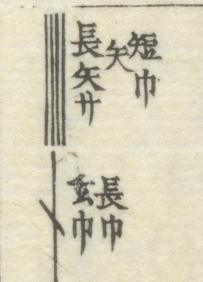 短巾
矢
長矢廾
長巾
玄巾